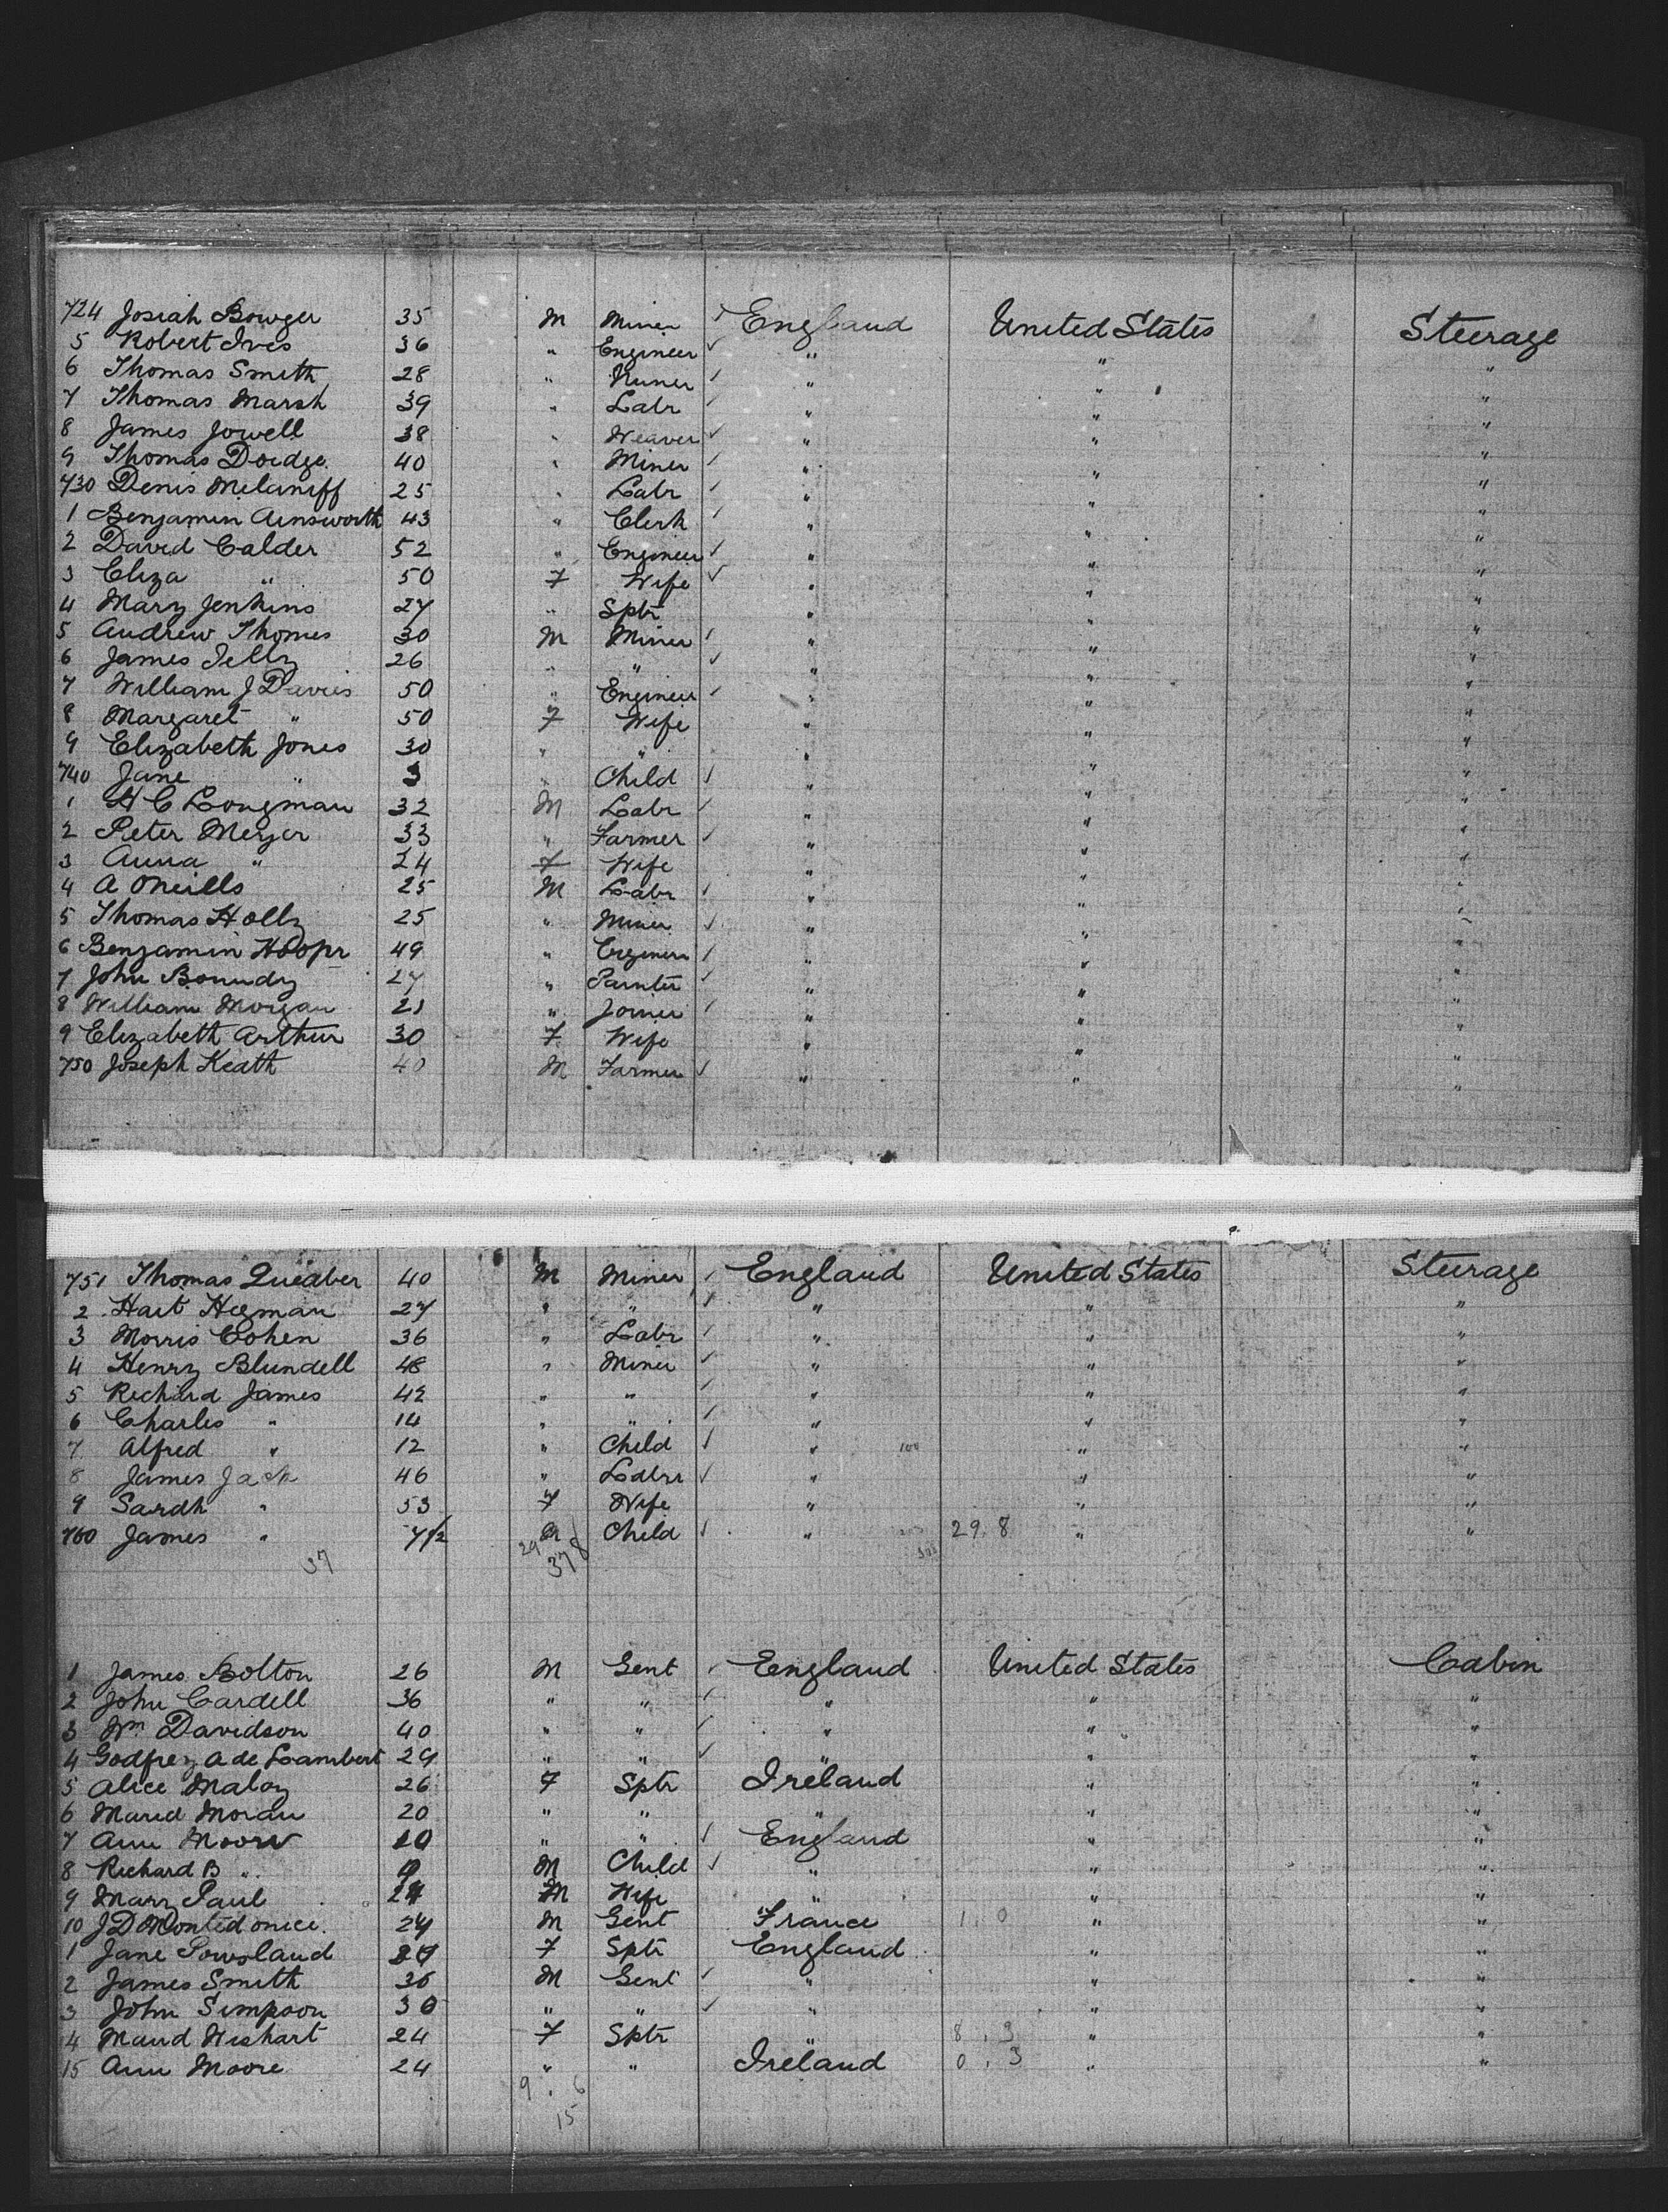 724 Josiah Bowger 35 M Miner ✓ England United States Steerage
5 Robert Ives 36 " Engineer ✓ " " "
6 Thomas Smith 28 " Miner ✓ " " "
7 Thomas Marsh 39 " Labr ✓ " " "
8 James Jowell 38 " Weaver ✓ " " "
9 Thomas Doidge 40 " Miner ✓ " " "
730 Denis Milaniff 25 " Labr ✓ " " "
1 Benjamin Ainsworth 43 " Clerk ✓ " " "
2 David Calder 52 " Engineer ✓ " " "
3 Eliza " 50 F Wife ✓ " " "
4 Mary Jenkins 27 " Sptr " " "
5 Andrew Thomes 30 M Miner ✓ " " "
6 James Jelly 26 " " ✓ " " "
7 William J Davies 50 " Engineer ✓ " " "
8 Margaret " 50 F Wife " " "
9 Elizabeth Jones 30 " " " " "
740 Jane " 3 " Child ✓ " " "
1 H C Longman 32 M Labr ✓ " " "
2 Peter Meyer 33 " Farmer ✓ " " "
3 Anna " 24 F Wife " " "
4 A Oneills 25 M Labr ✓ " " "
5 Thomas Holly 25 " Miner ✓ " " "
6 Benjamin Hoopr 49 " Engineer ✓ " " "
7 John Boundy 27 " Painter ✓ " " "
8 William Morgan " Joiner ✓ " " "
9 Elizabeth Arthur 30 F Wife " " "
750 Joseph Keath 40 M Farmer ✓ " " "
751 Thomas 40 M Miner ✓ England United States Steerage
2 Hart Hegman 27 " " ✓ " " "
3 Morris Cohen 36 " Labr ✓ " " "
4 Henry Blundell 48 " Miner ✓ " " "
5 Richard James 42 " " ✓ " " "
6 Charles " 14 " " ✓ " " "
7 Alfred " 12 " Child ✓ " " "
8 James Jack 46 " Labr ✓ " " "
9 Sarah " 53 F Wife " " "
760 James " 7/12 M Child ✓ " 29.8 " "
37 29 8 37
1 James Bolton 26 M Gent ✓ England United States Cabin
2 John Cardell 36 " " ✓ " " "
3 Wm Davidson 40 " " ✓ " " "
4 Godfrey A de Lambert 29 " " ✓ " " "
5 Alice Maloy 26 F Sptr Ireland " "
6 Moran 20 " " " " "
7 Ann Moore " " ✓ England " "
8 Richard B " M Child ✓ " " "
9 Mary Paul M Wife " " "
10 J D 24 M Gent France 1.0 " "
1 Jane Powsland F Sptr England " "
2 James Smith 36 M Gent ✓ " " "
3 John Simpson 30 " " ✓ " " "
4 Maud Wishart 24 F Sptr " 8.3 " "
15 Ann Moore 24 " " Ireland 0.3 " "
9.6
15